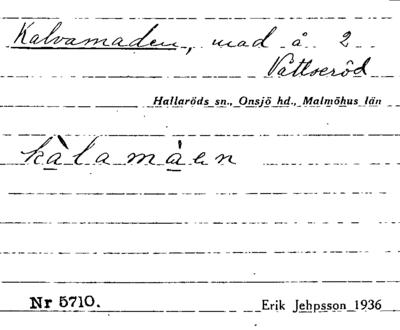 Kalvamaden, mad å 2
Vattseröd
Hallaröds sn., Onsjö hd., Malmöhus län
kàlamàen
Nr 5710.
Erik Jehpsson 1936